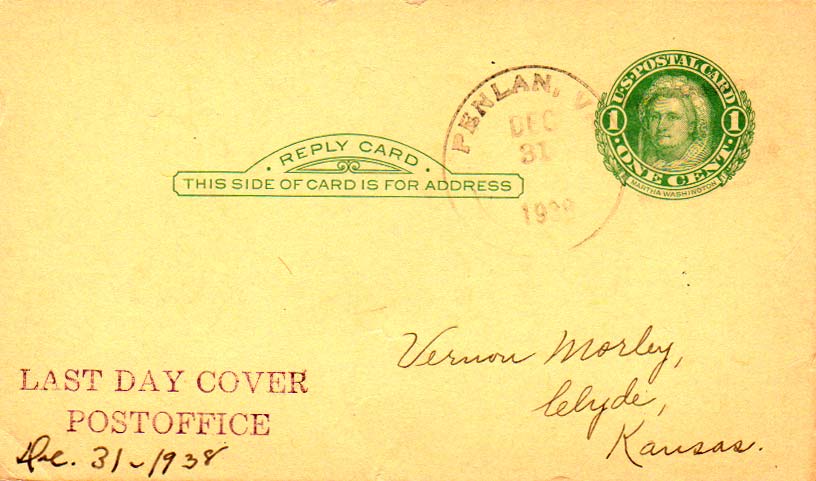 PENLAN, V
DEC
31
U.S. POSTAL CARD
1 1
ONE CENT
MARTHA WASHINGTON
· REPLY CARD ·
THIS SIDE OF CARD IS FOR ADDRESS
Vernon Morley,
Clyde,
Kansas.
LAST DAY COVER
POSTOFFICE
Dec. 31-1938